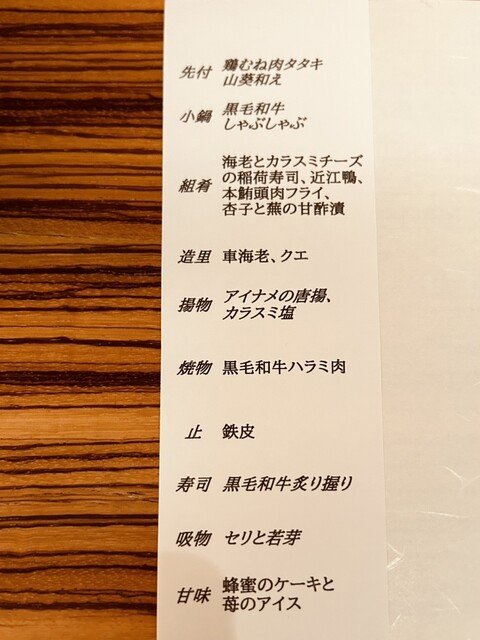 先付 鶏むね肉タタキ
山葵和え
小鍋 黒毛和牛
しゃぶしゃぶ
組肴 海老とカラスミチーズ
の稲荷寿司、近江鴨、
本鮪頭肉フライ、
杏子と蕪の甘酢漬
造里 車海老、クエ
揚物 アイナメの唐揚、
カラスミ塩
焼物 黒毛和牛ハラミ肉
止 鉄皮
寿司 黒毛和牛炙り握り
吸物 セリと若芽
甘味 蜂蜜のケーキと
苺のアイス